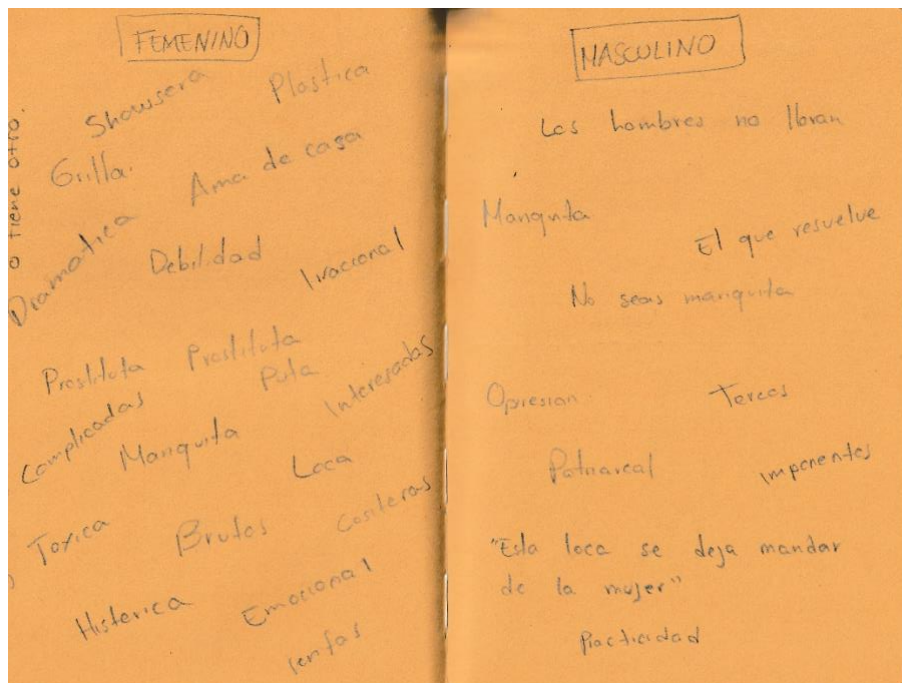 FEMENINO
Showsera
Plastica
o tiene otro.
Grilla.
Ama de casa
Dramatica
Debilidad
Irracional
Prostituta
Prostituta
Puta
Interesadas
Complicadas
Mariquita
Loca
Toxica
Brutas
Cositeras
Histerica
Emocional
lentas
MASCULINO
Los hombres no lloran
Mariquita
El que resuelve
No seas mariquita
Opresion
Tercos
Patriarcal
imponentes
"Esta loca se deja mandar
de la mujer"
Practicidad